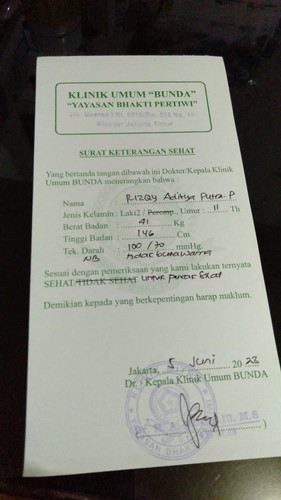 KLINIK UMUM "BUNDA"
"YAYASAN BHAKTI PERTIWI"
Jakarta Timur
SURAT KETERANGAN SEHAT
Yang bertanda tangan dibawah ini Dokter/Kepala Klinik
Umum BUNDA menerangkan bahwa :
Nama : RIZQY Aditya Putra. P
Jenis Kelamin : Laki2 / Peremp., Umur : 11 Th
Berat Badan : 41 Kg
Tinggi Badan : 146 Cm
Tek. Darah : 100 / 70 mmHg.
NB tidak buta warna
Sesuai dengan pemeriksaan yang kami lakukan ternyata
SEHAT/TIDAK SEHAT untuk
Demikian kepada yang berkepentingan harap maklum.
Jakarta, 5 Juni 2023
Dr. / Kepala Klinik Umum BUNDA